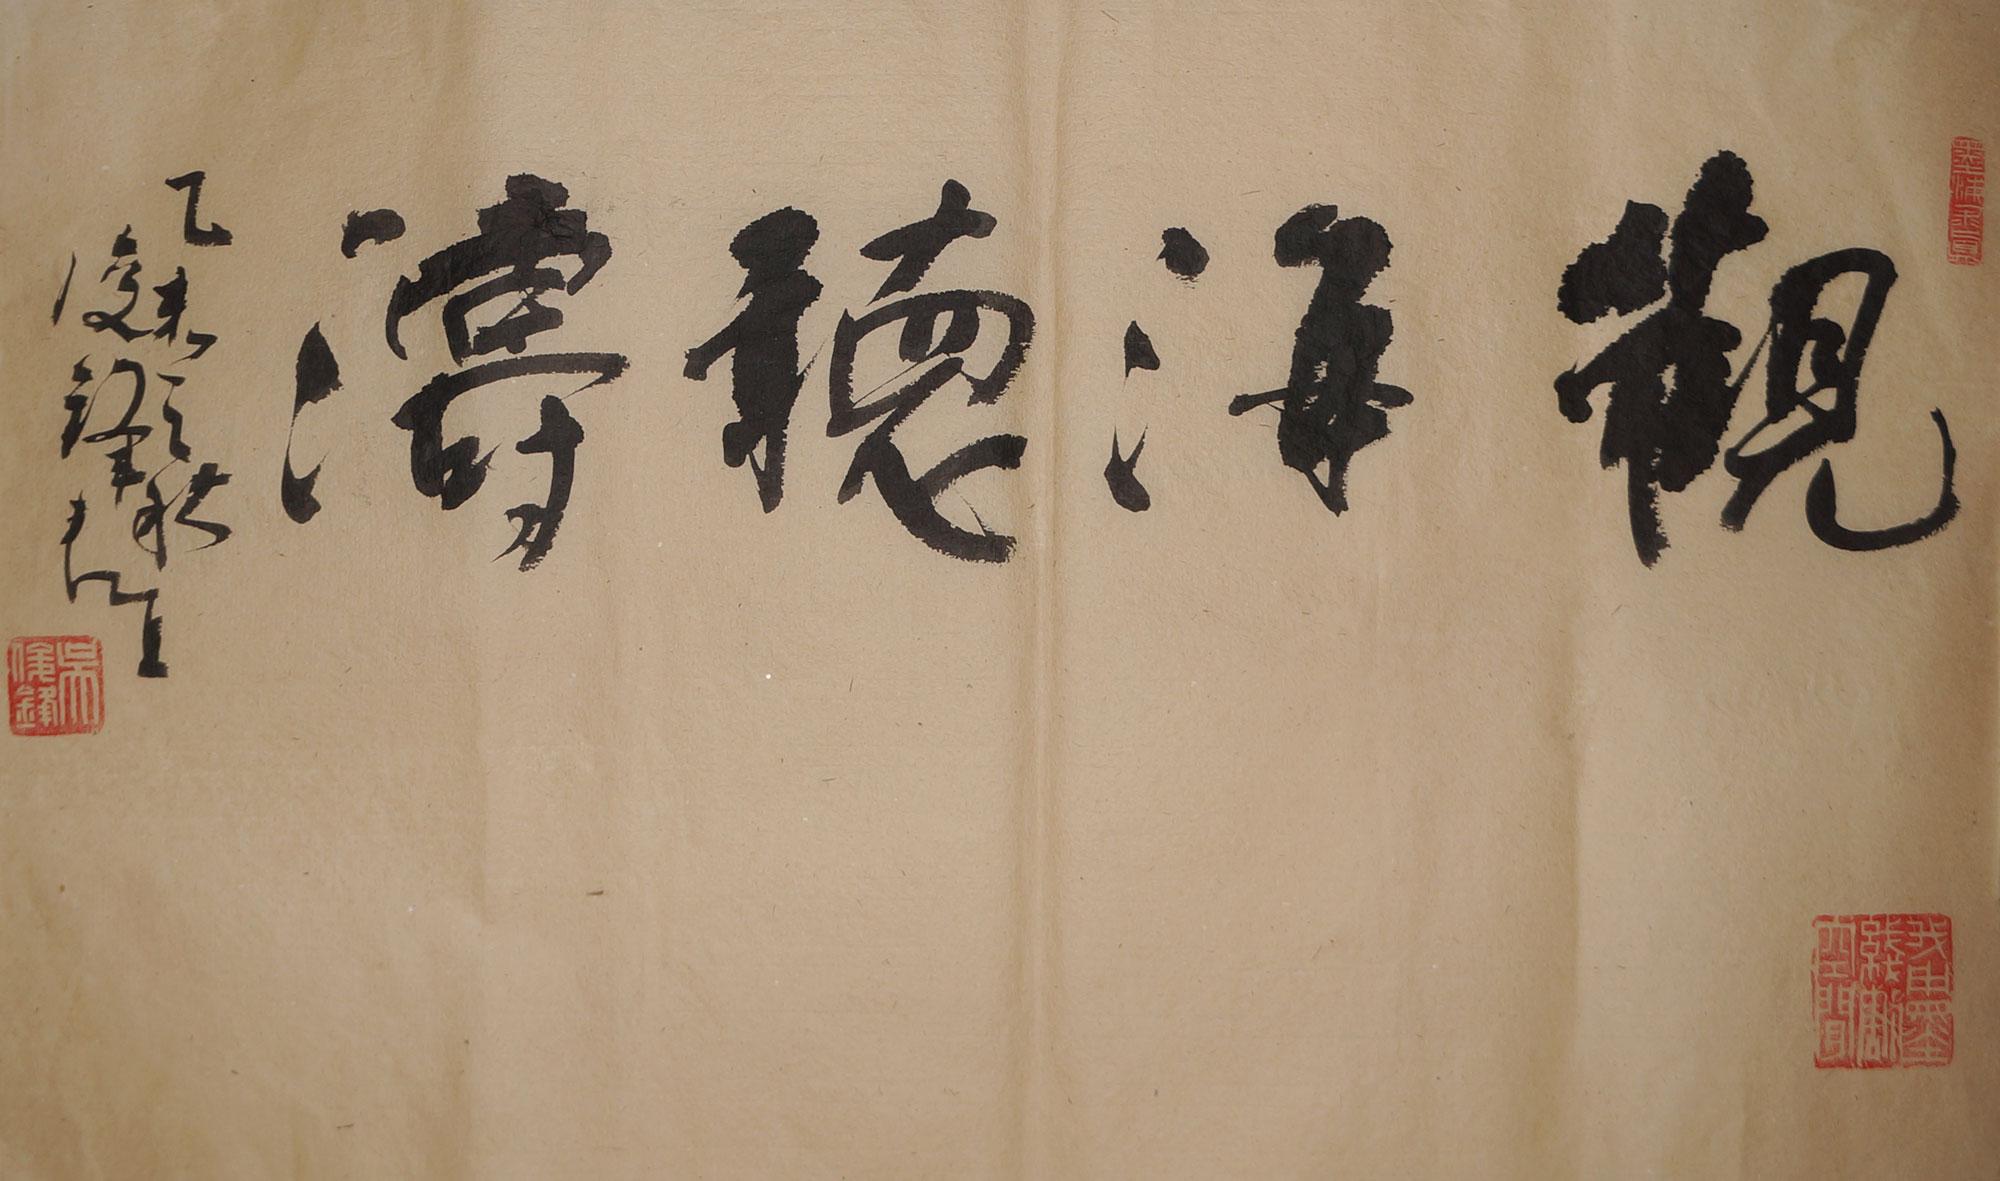 觀海聽濤
乙未之秋月
俊鋒書
吳俊鋒